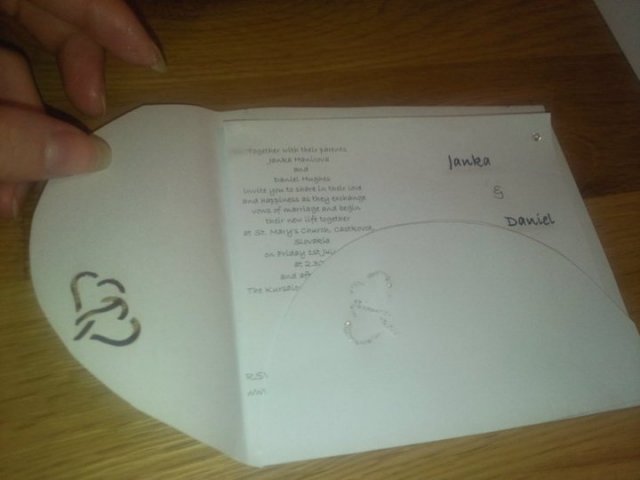 Together with their parents
Janka Manicova
and
Daniel Hughes
Invite you to share in their love
and happiness as they exchange
vows of marriage and begin
their new lift together
at St. Mary's Church, Castkova,
Slovakia
on Friday 1st Ju
at 2.3
and aft
The Kursalo
RSV
WW
Janka
&
Daniel